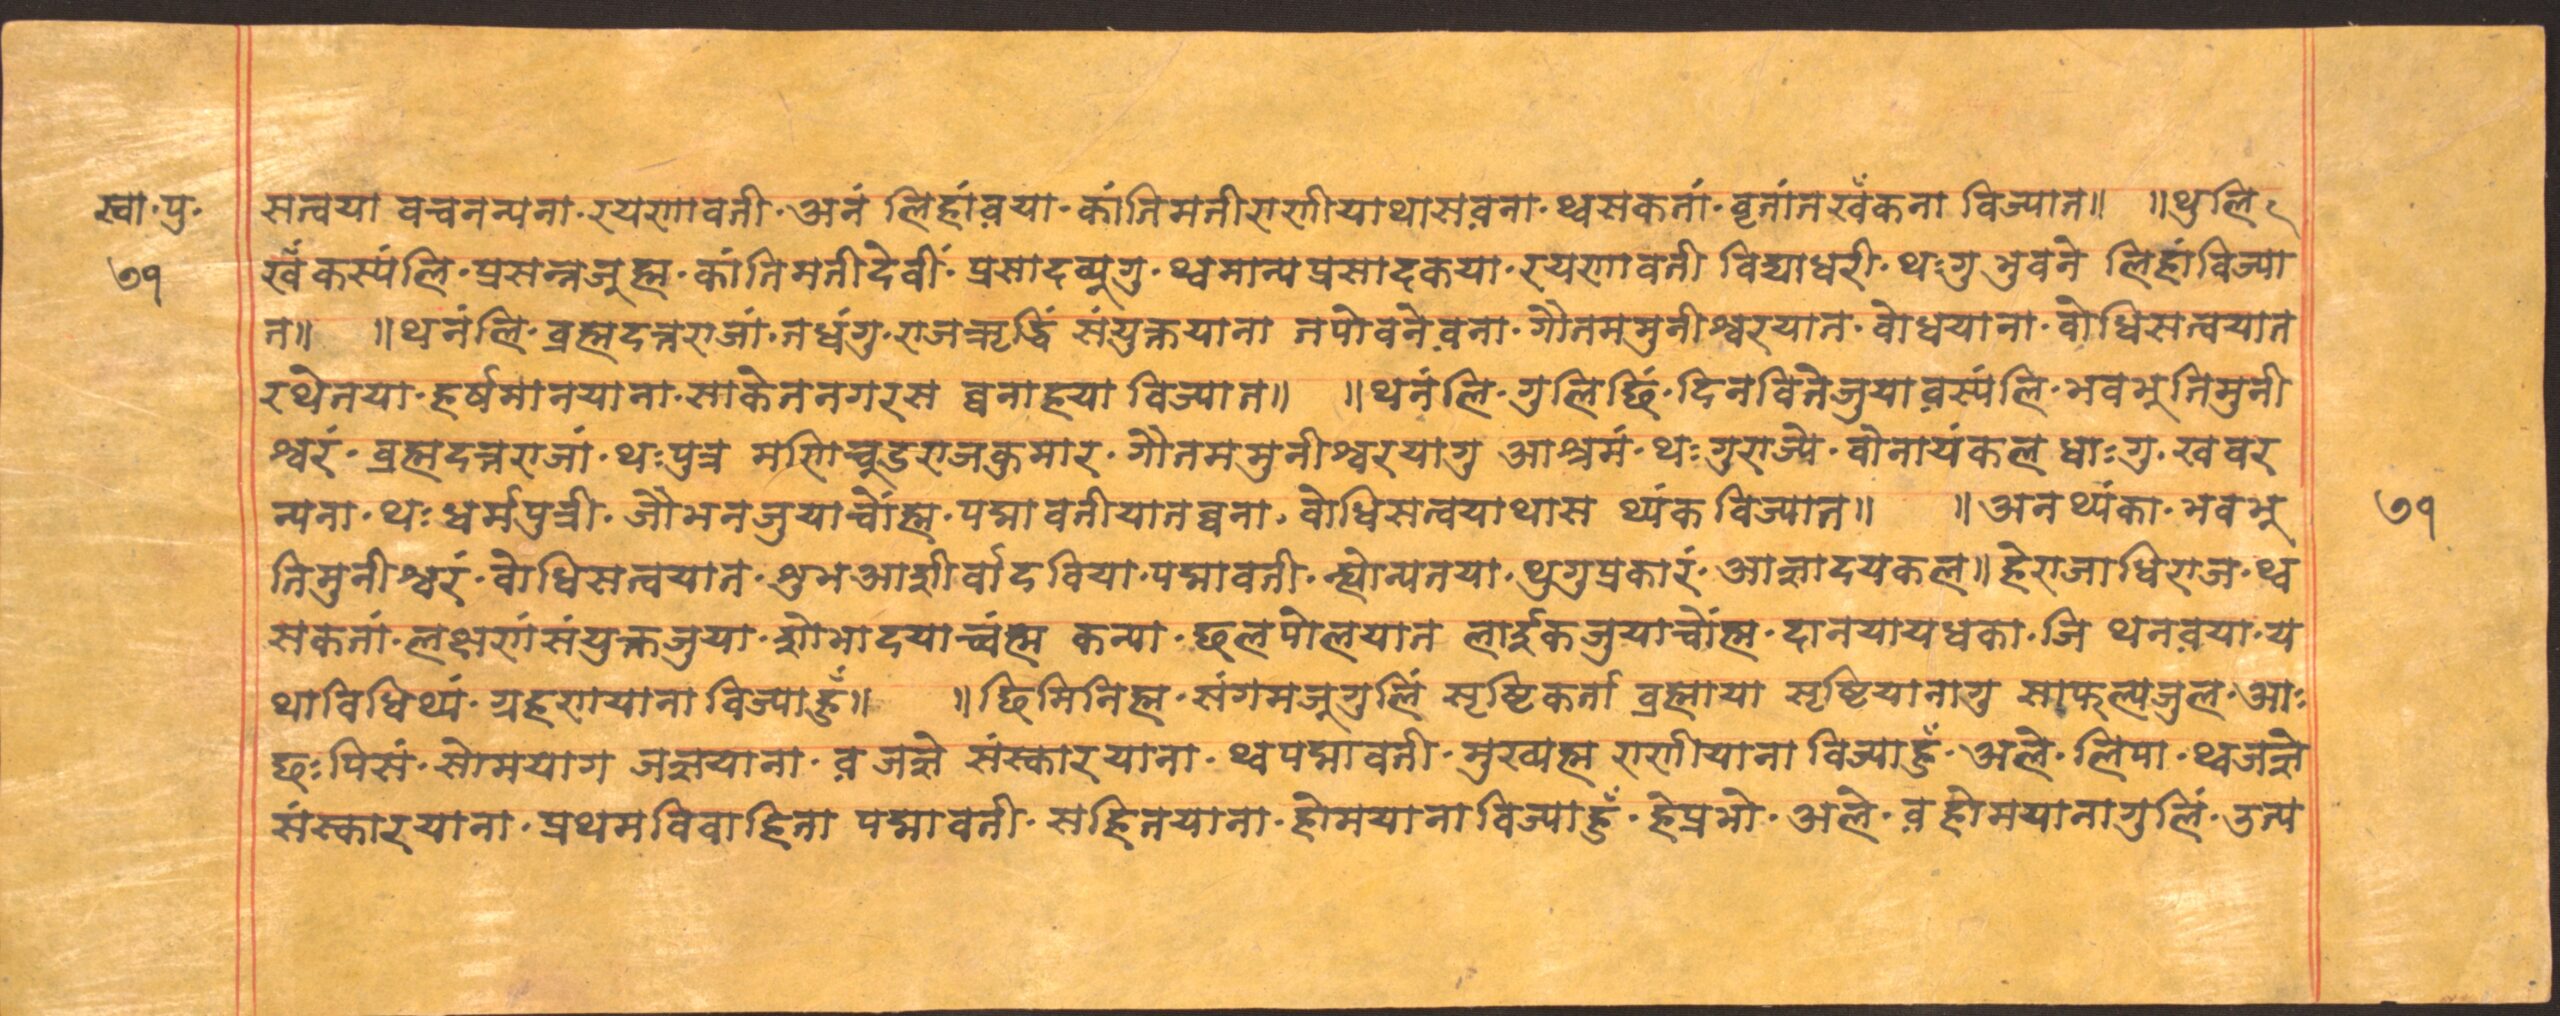 स्वा·पु·
७१
सत्वया वचनन्यना·रयणावती·अनं लिहांव़या·कांतिमतीराणीयाथासव़ना·थ्वसकतां·वृतांतखँकना विज्यात॥ ॥थुलि
खँकस्यंलि·प्रसन्नजुह्म·कांतिमतीदेवीं·प्रसादव्यूगु·थ्वमान्यप्रसादकया·रयणावती विद्याधरी·थःगु भुवने लिहांविज्या
त॥ ॥थनंलि·व्रह्मदत्तराजां·तधंगु·राजऋृद्धिं संयुक्तयाना तपोवनेव़ना·गौतममुनीश्वरयात·वोधयाना·वोधिसत्वयात
रथेतया·हर्षमानयाना·साकेतनगरस व्वनाहया विज्यात॥ ॥थनंलि·गुलिछिं·दिनवितेजुयाव़स्यंलि·भवभूतिमुनी
श्वरं·व्रह्मदत्तराजां·थःपुत्र मणिचूडराजकुमार·गौतममुनीश्वरयागु आश्रमं·थःगुराज्ये·वोनायंकल धाःगु·खवर
न्यना·थःधर्मपुत्री·जौभनजुयाच्चोंह्म·पद्मावतीयातव्वना·वोधिसत्वयाथास थ्यंक विज्यात॥ ॥अनथ्यंका·भवभू
७१
तिमुनीश्वरं·वोधिसत्वयात·शुभआशीर्वादविया·पद्मावती·न्ह्योन्यतया·थुगुप्रकारं·आज्ञादयकल॥हेराजाधिराज·थ्व
सकतां·लक्षणंसंयुक्तजुया·शोभादयाच्वंह्म कन्या·छलपोलयात लाईकजुयाच्चोंह्म·दानयायधका·जि थनव़या·य
थाविधिथ्यं·ग्रहणयाना विज्याहुँ॥ ॥छिमिनिह्म·संगमजूगुलिं सृष्टिकर्ता व्रह्माया सृष्टियानागु साफल्यजुल·आः
छःपिसं·सोमयाग जज्ञयाना·व़ जज्ञे संस्कारयाना·थ्वपद्मावती·मुख्यह्म राणीयाना विज्याहुँ·अले·लिपा·थ्वजज्ञे
संस्कारयाना·प्रथमविवाहिता पद्मावती·सहितयाना·होमयाना विज्याहुँ·हेप्रभो·अले·व़ होमयानागुलिं·उत्प